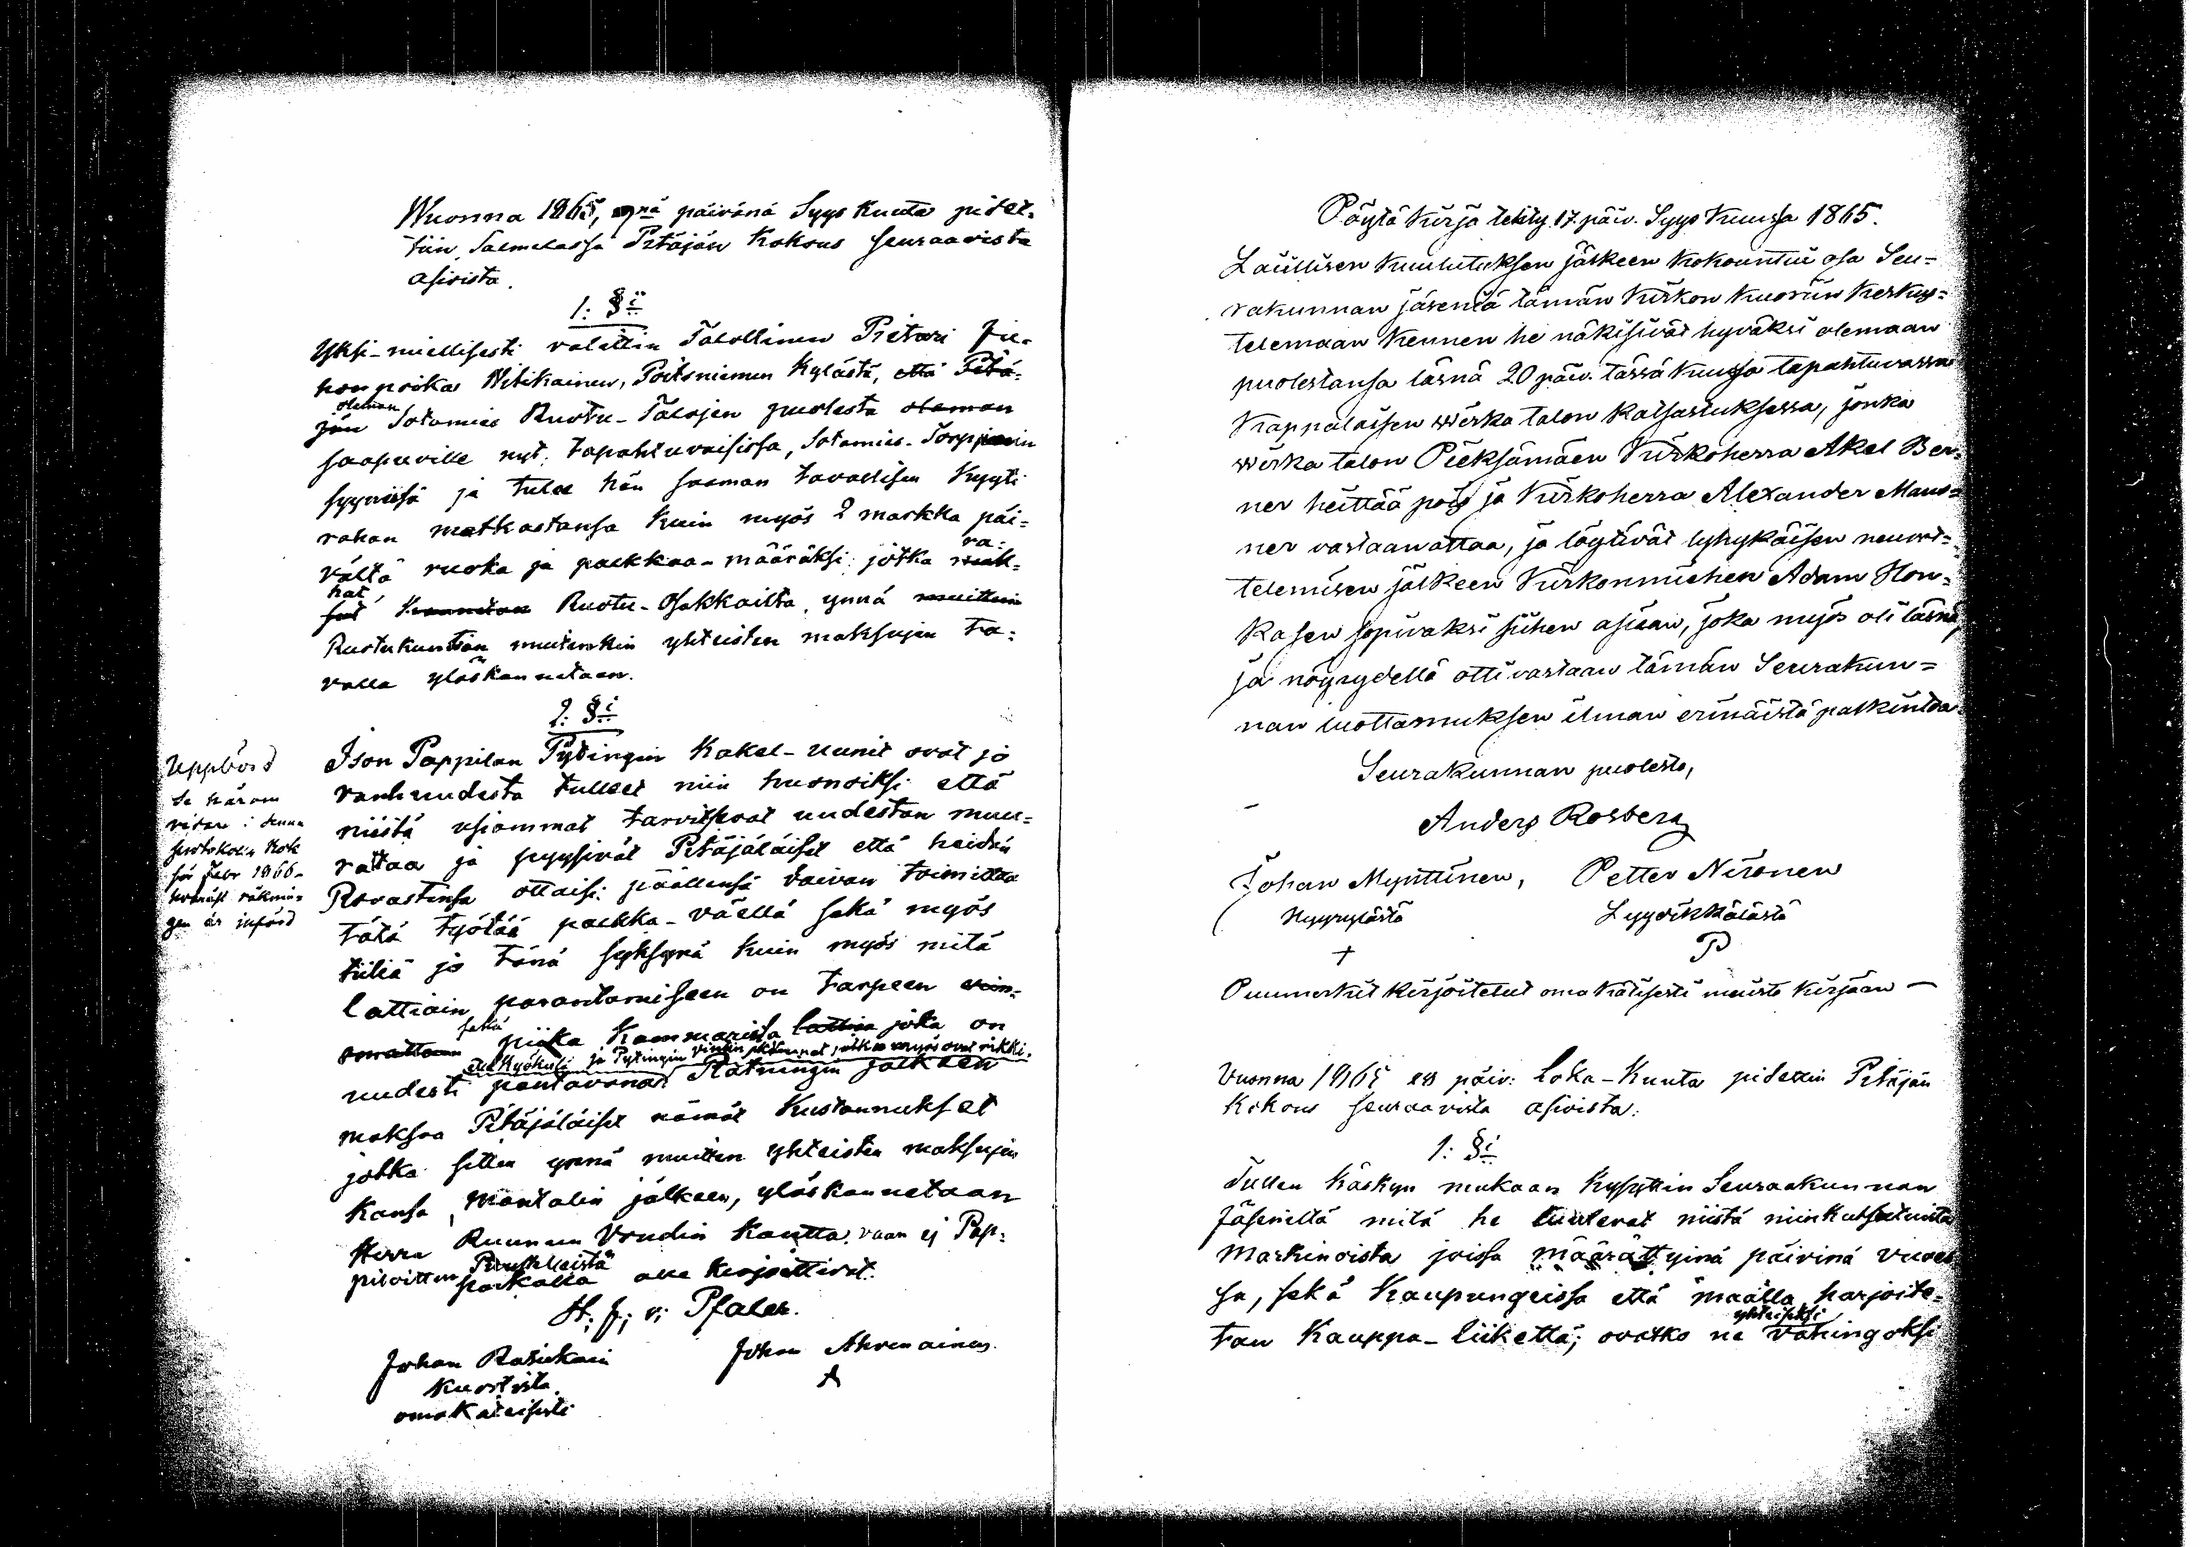 Wuonna 1865, päivänä Syys kuuta pidet-
tiin Pitäjän Kokous seuraavista
asioista.
1: §i
Yksi-mielisesti valittiin Talollinen Pietari Ju-
hon poika Nykäinen, kylästä, että Pitä-
oleman
jän Sotamies Ruotu-Talojen puolesta oleman
saapuville nyt tapahtuvaisissa, Sotamies-Torppain
syynissä ja tulee hän saaman tavallisen Kyyti
rahan matkastansa kuin myös 2 markka päi-
vältä ruoka ja palkkaa-määräksi jotka
ra-
hat Ruotu-Osakkailta, ynnä muitten
Ruotukuntian muitenkin yhteisten maksujen ta-
valla ylöskannetaan.
2: §i
Ison Pappilan Pytingin Kakel-uunit ovat jo
vanhuudesta tulleet niin huonoiksi että
niistä usiammat tarvitsevat uudestan muu-
rataa ja pyysivät Pitäjäläiset että heidän
Rovastinsa ottaisi päällensä vaivan toimittaa
tätä työtää palkka-väellä sekä myös
tiiliä jo tänä syksynä kuin myös mitä
lattiain parantamiseen on tarpeen
sekä
piika Kammarista lattia joka on
että Kyökisi ja Pytingin jotka myös ovat rikki.
uudesti pantavana. Rätningin jälkeen
maksaa Pitäjäläiset nämät Kustannukset
jotka sitten ynnä muitten yhteisten maksujen
kansa, Mantalin jälkeen, ylöskannetaan
Herra Ruunun Voudin Kautta, vaan ej Pap-
piloitten
alle kirjoittivat.
H: f: v: Pfaler.
Johan Johan Ahvenainen
omakätisesti
Uppbörd
Se härom
vidare i denna
protokolls bok
för Febr 1866-
hvaräst räknin-
gen är införd
Pöytä Kirja tehty 17. päiv. Syys Kuussa 1865.
Laillisen Kuulutuksen jälkeen Kokountui osa Seu-
rakunnan jäseniä tämän Kirkon Kuoriin Keskus-
telemaan Kennen he näkisivät hyväksi olemaan
puolestansa läsnä 20 päiv. tässä Kuussa tapahtuvassa
Kappalaisen wirka talon Katsastuksessa, jonka
wirka talon Pieksämäen Kirkoherra Akel Ber-
ner heittää pois ja Kirkoherra Alexander Mans-
ner vastaanottaa, ja löysivät lyhykäisen neuvot-
telemisen jälkeen Kirkonmiehen Adam Hon-
kasen sopivaksi siihen asiaan, joka myös oli läsnä,
ja nöyrydellä otti vastaan tämän Seurakun-
nan luottamuksen ilman erinäistä palkintoa.
Seurakunnan puolesta,
Anders Rosberg
Johan Mynttinen, Petter Nironen
Hyyrylästä Lyydikkälästä
+ P
Puumerkit kirjoitetut omakätisesti muisto Kirjaan —
Vuonna 1865 päiv: Loka-Kuuta pidettiin Pitäjän
Kokous seuraavista asioista:
1: §i
Tullen Käskyn mukaan Kysyttiin Seurakunnan
Jäseniltä mitä he luulevat niistä niinkutsutuista
Markinoista joissa määrättyinä päivinä vuodes-
sa, sekä Kaupungeissa että maalla harjoite-
yhteiseksi
tan Kauppa-liikettä; ovatko ne vahingoksi